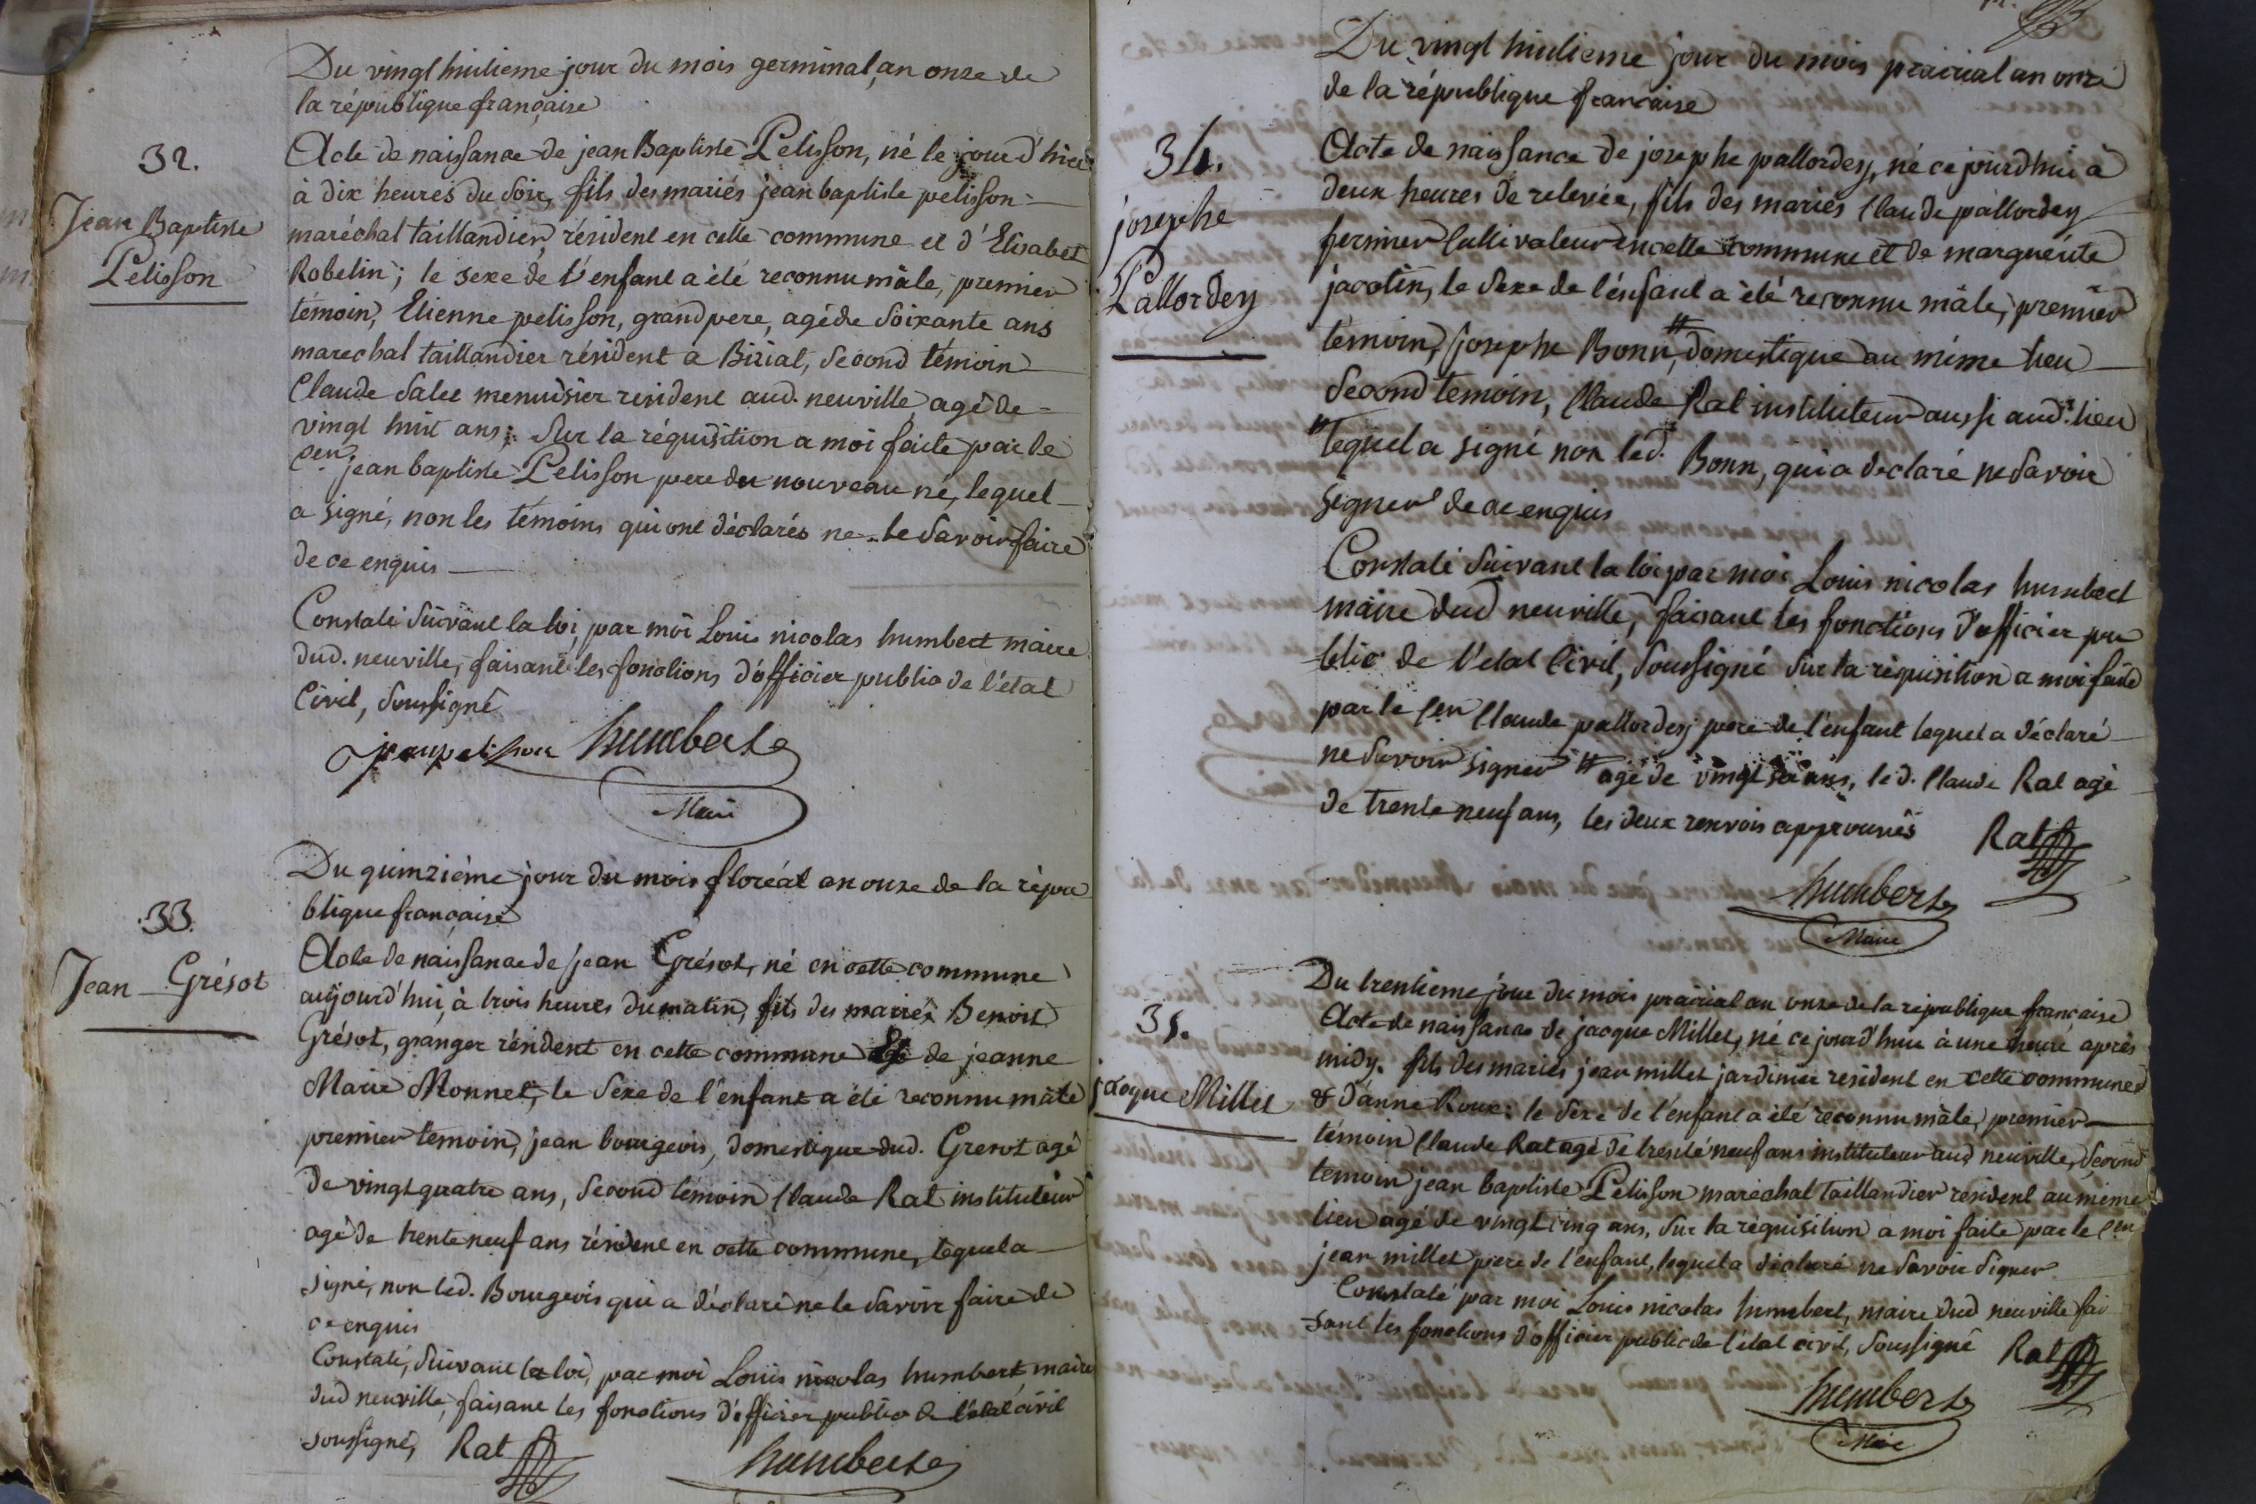 32.
Jean Baptiste
Pelisson
Du vingt huitieme jour du mois germinal, an onze de
la république française
Acte de naissance de jean Baptiste Pelisson, né le jour d'hier
à dix heures du soir, fils des mariés jean baptiste pelisson
maréchal taillandier, résident en cette commune et d'Elisabet
Robelin; le sexe de l'enfant a été reconnu mâle, premier
témoin, Etienne pelisson, grand pere, agé de soixante ans
marechal taillandier résident a Biziat, second témoin
Claude Salet menuisier resident aud. neuville agé de
vingt huit ans; sur la réquisition a moi faite par le
cen. jean baptiste Pelisson pere du nouveau né, lequel
a signé, non les témoins qui ont déclarés ne le savoir faire
de ce enquis
Constaté suivant la loi, par moi Louis nicolas humbert maire
dud. neuville, faisant les fonctions d'officier public de l'état
Civil, soussigné
jean pelisson humbert
Maire
33.
Jean Grésot
Du quinzième jour du mois floréal an onze de la répu
blique française
Acte de naissance de jean Grésot, né en cette commune
aujourd'hui, à trois heures du matin, fils des mariés Benoit
Grésot, granger résident en cette commune & de jeanne
Marie Monnet, le sexe de l'enfant a été reconnu mâle
premier temoin, jean bourgeois, domestique dud. Gresot agé
de vingt quatre ans, second témoin Claude Rat instituteur
agé de trente neuf ans résident en cette commune, lequel a
signé, non led. Bourgeois qui a déclaré ne le savoir faire de
ce enquis
Constaté, suivant la loi, par moi Louis nicolas humbert maire
dud neuville, faisant les fonctions d'officier public de l'état civil
soussigné, Rat
humbert
34.
josephe
Pallordey
Du vingt huitieme jour du mois prairial an onze
de la république française
Acte de naissance de josephe pallordey, né ce jourdhui à
deux heures de relevée, fils des mariés Claude pallordey
fermier Cultivateur en cette commune et de marguérite
jacotin, le sexe de l'enfant a été reconnu mâle, premier
témoin, josephe Bonn # domestique au même lieu
second temoin, Claude Rat instituteur aussi aud. lieu
# lequel a signé non led. Bonn, qui a déclaré ne savoir
signer de ce enquis
Constaté suivant la loi par moi Louis nicolas humbert
maire dud neuville, faisant les fonctions d'officier pu
blic de l'etat Civil, soussigné sur la réquisition a moi faite
par le cen Claude pallordey pere de l'enfant lequel a déclaré
ne savoir signer # agé de vingt ans, led. Claude Rat agé
de trente neuf ans, les deux renvois approuvés
Rat
humbert
Maire
35.
jacque Millet
Du trentieme jour du mois prairial an onze de la république française
Acte de naissance de jacque Millet, né ce jourd'hui à une heure après
midy. fils des mariés jean millet jardinier resident en cette commune
& d'anne Roux: le sexe de l'enfant a été reconnu mâle, premier
témoin Claude Rat agé de trente neuf ans instituteur aud neuville, second
temoin jean baptiste Pelisson maréchal taillandier resident au même
lieu agé de vingt cinq ans, sur la réquisition a moi faite par le cen
jean millet pere de l'enfant, lequel a déclaré ne savoir signer
Constaté par moi Louis nicolas humbert, maire dud neuville fai
sant les fonctions d'officier public de l'état civil, soussigné Rat
humbert
Maire